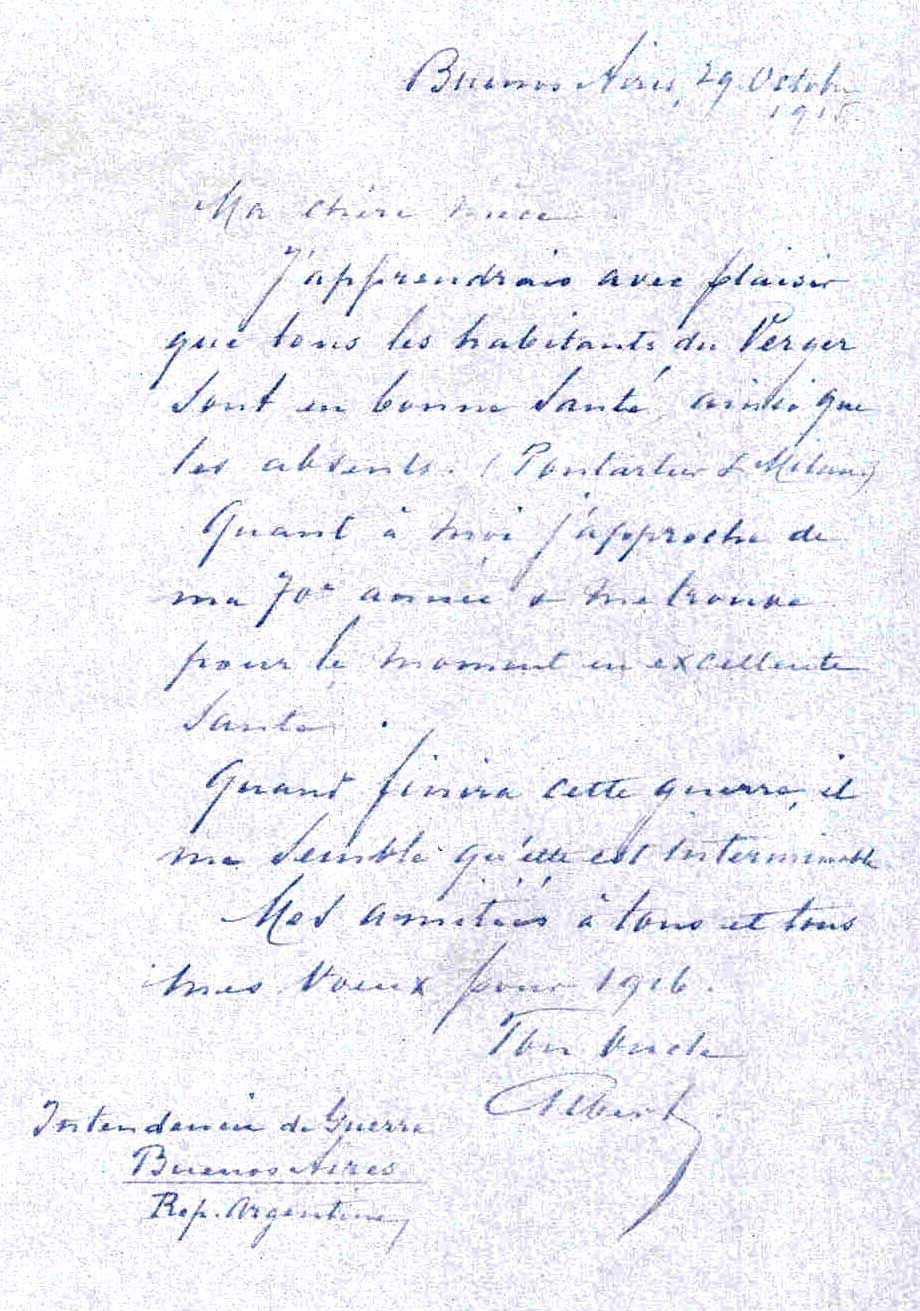 Buenos Aires, 29 Octobre
1915.
Ma chère nièce
J'apprendrais avec plaisir
que tous les habitants du Verger
sont en bonne santé, ainsi que
les absents. (Pontarlier & Milan)
Quant à moi j'approche de
ma 70e année & me trouve
pour le moment en excellente
santé.
Quand finira cette guerre, il
me semble qu'elle est interminable
Mes amitiés à tous et tous
mes voeux pour 1916.
Ton Oncle
Albert
Intendencia de Guerra
Buenos Aires
Rep. Argentina